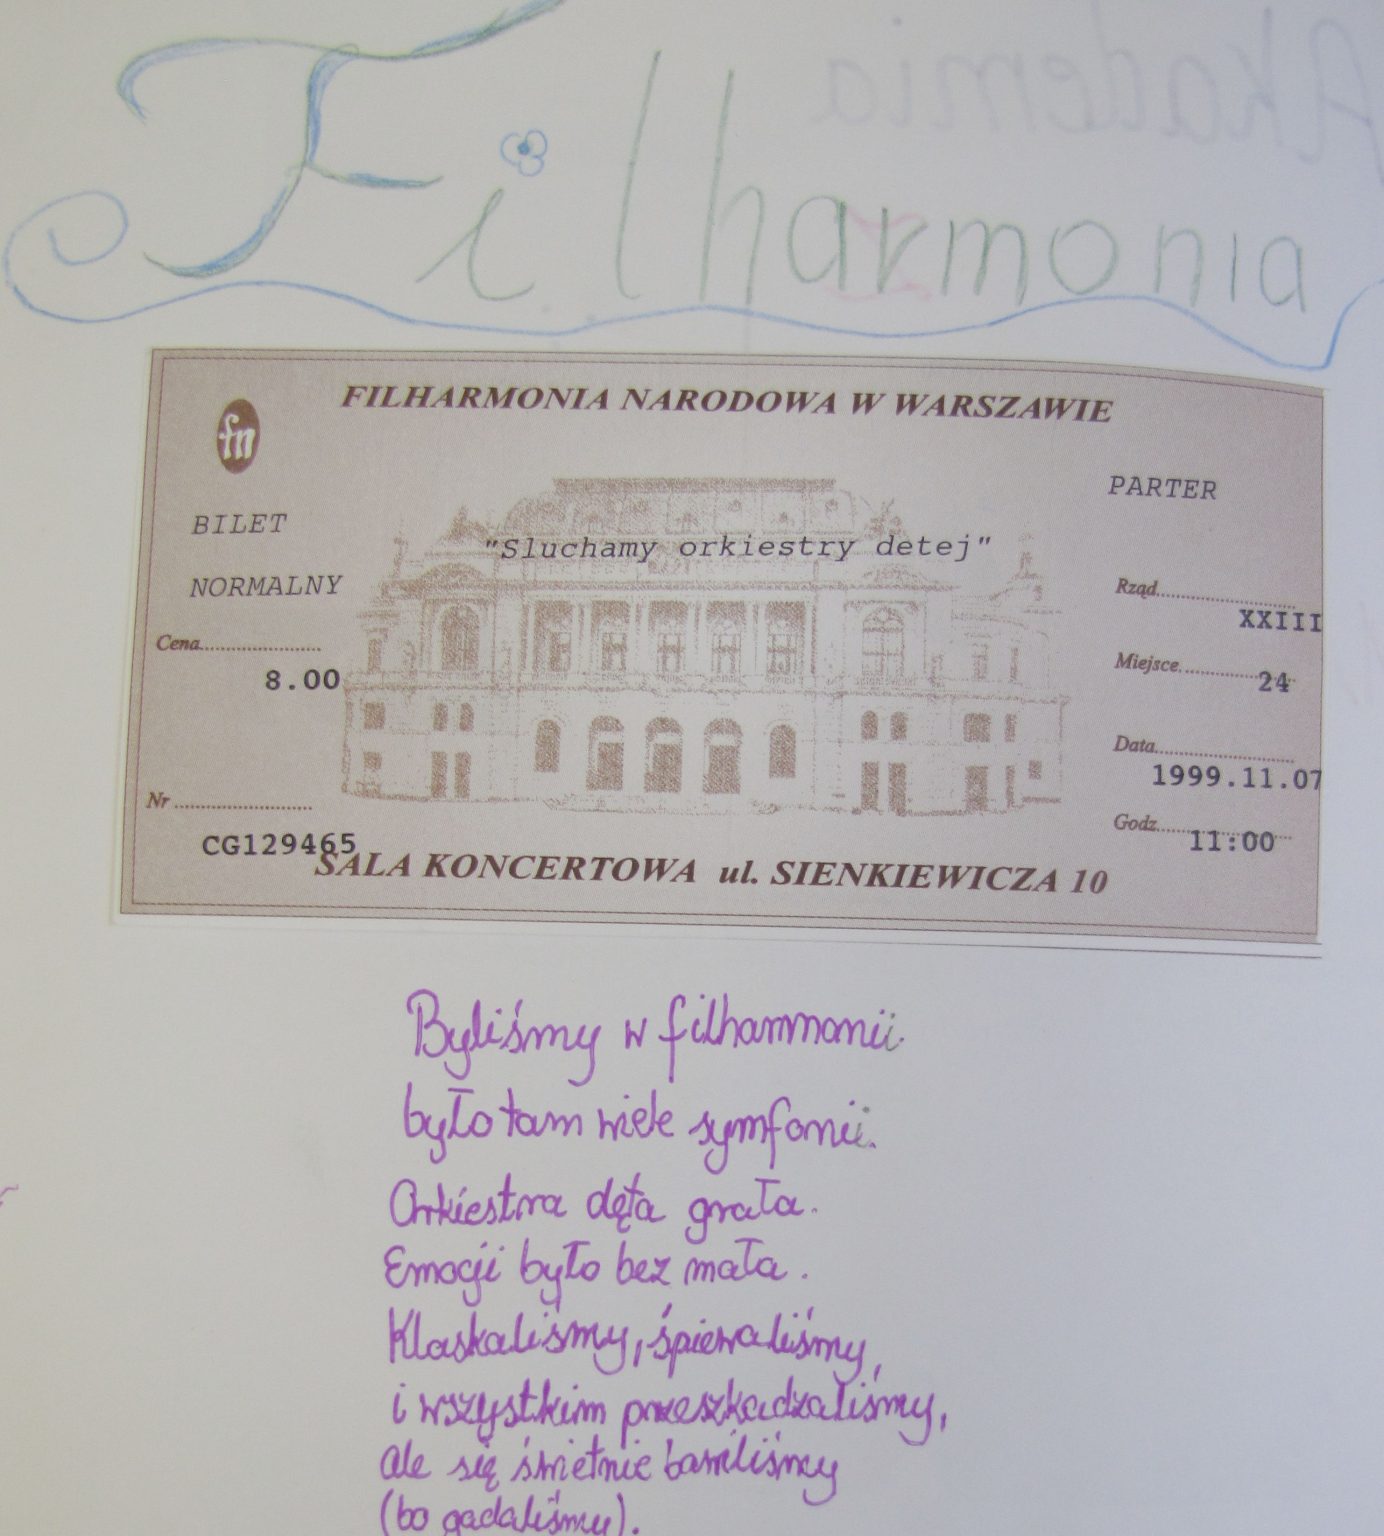 Akademia
Filharmonia
fn
FILHARMONIA NARODOWA W WARSZAWIE
PARTER
BILET
"Sluchamy orkiestry detej"
NORMALNY
Rząd
XXIII
Cena
8.00
Miejsce
24
Data
1999.11.07
Nr
CG129465
Godz
11:00
SALA KONCERTOWA ul. SIENKIEWICZA 10
Byliśmy w filharmonii.
było tam wiele symfonii.
Orkiestra dęta grała.
Emocji było bez mała.
Klaskaliśmy, śpiewaliśmy,
i wszystkim przeszkadzaliśmy,
ale się świetnie bawiliśmy
(bo gadaliśmy).